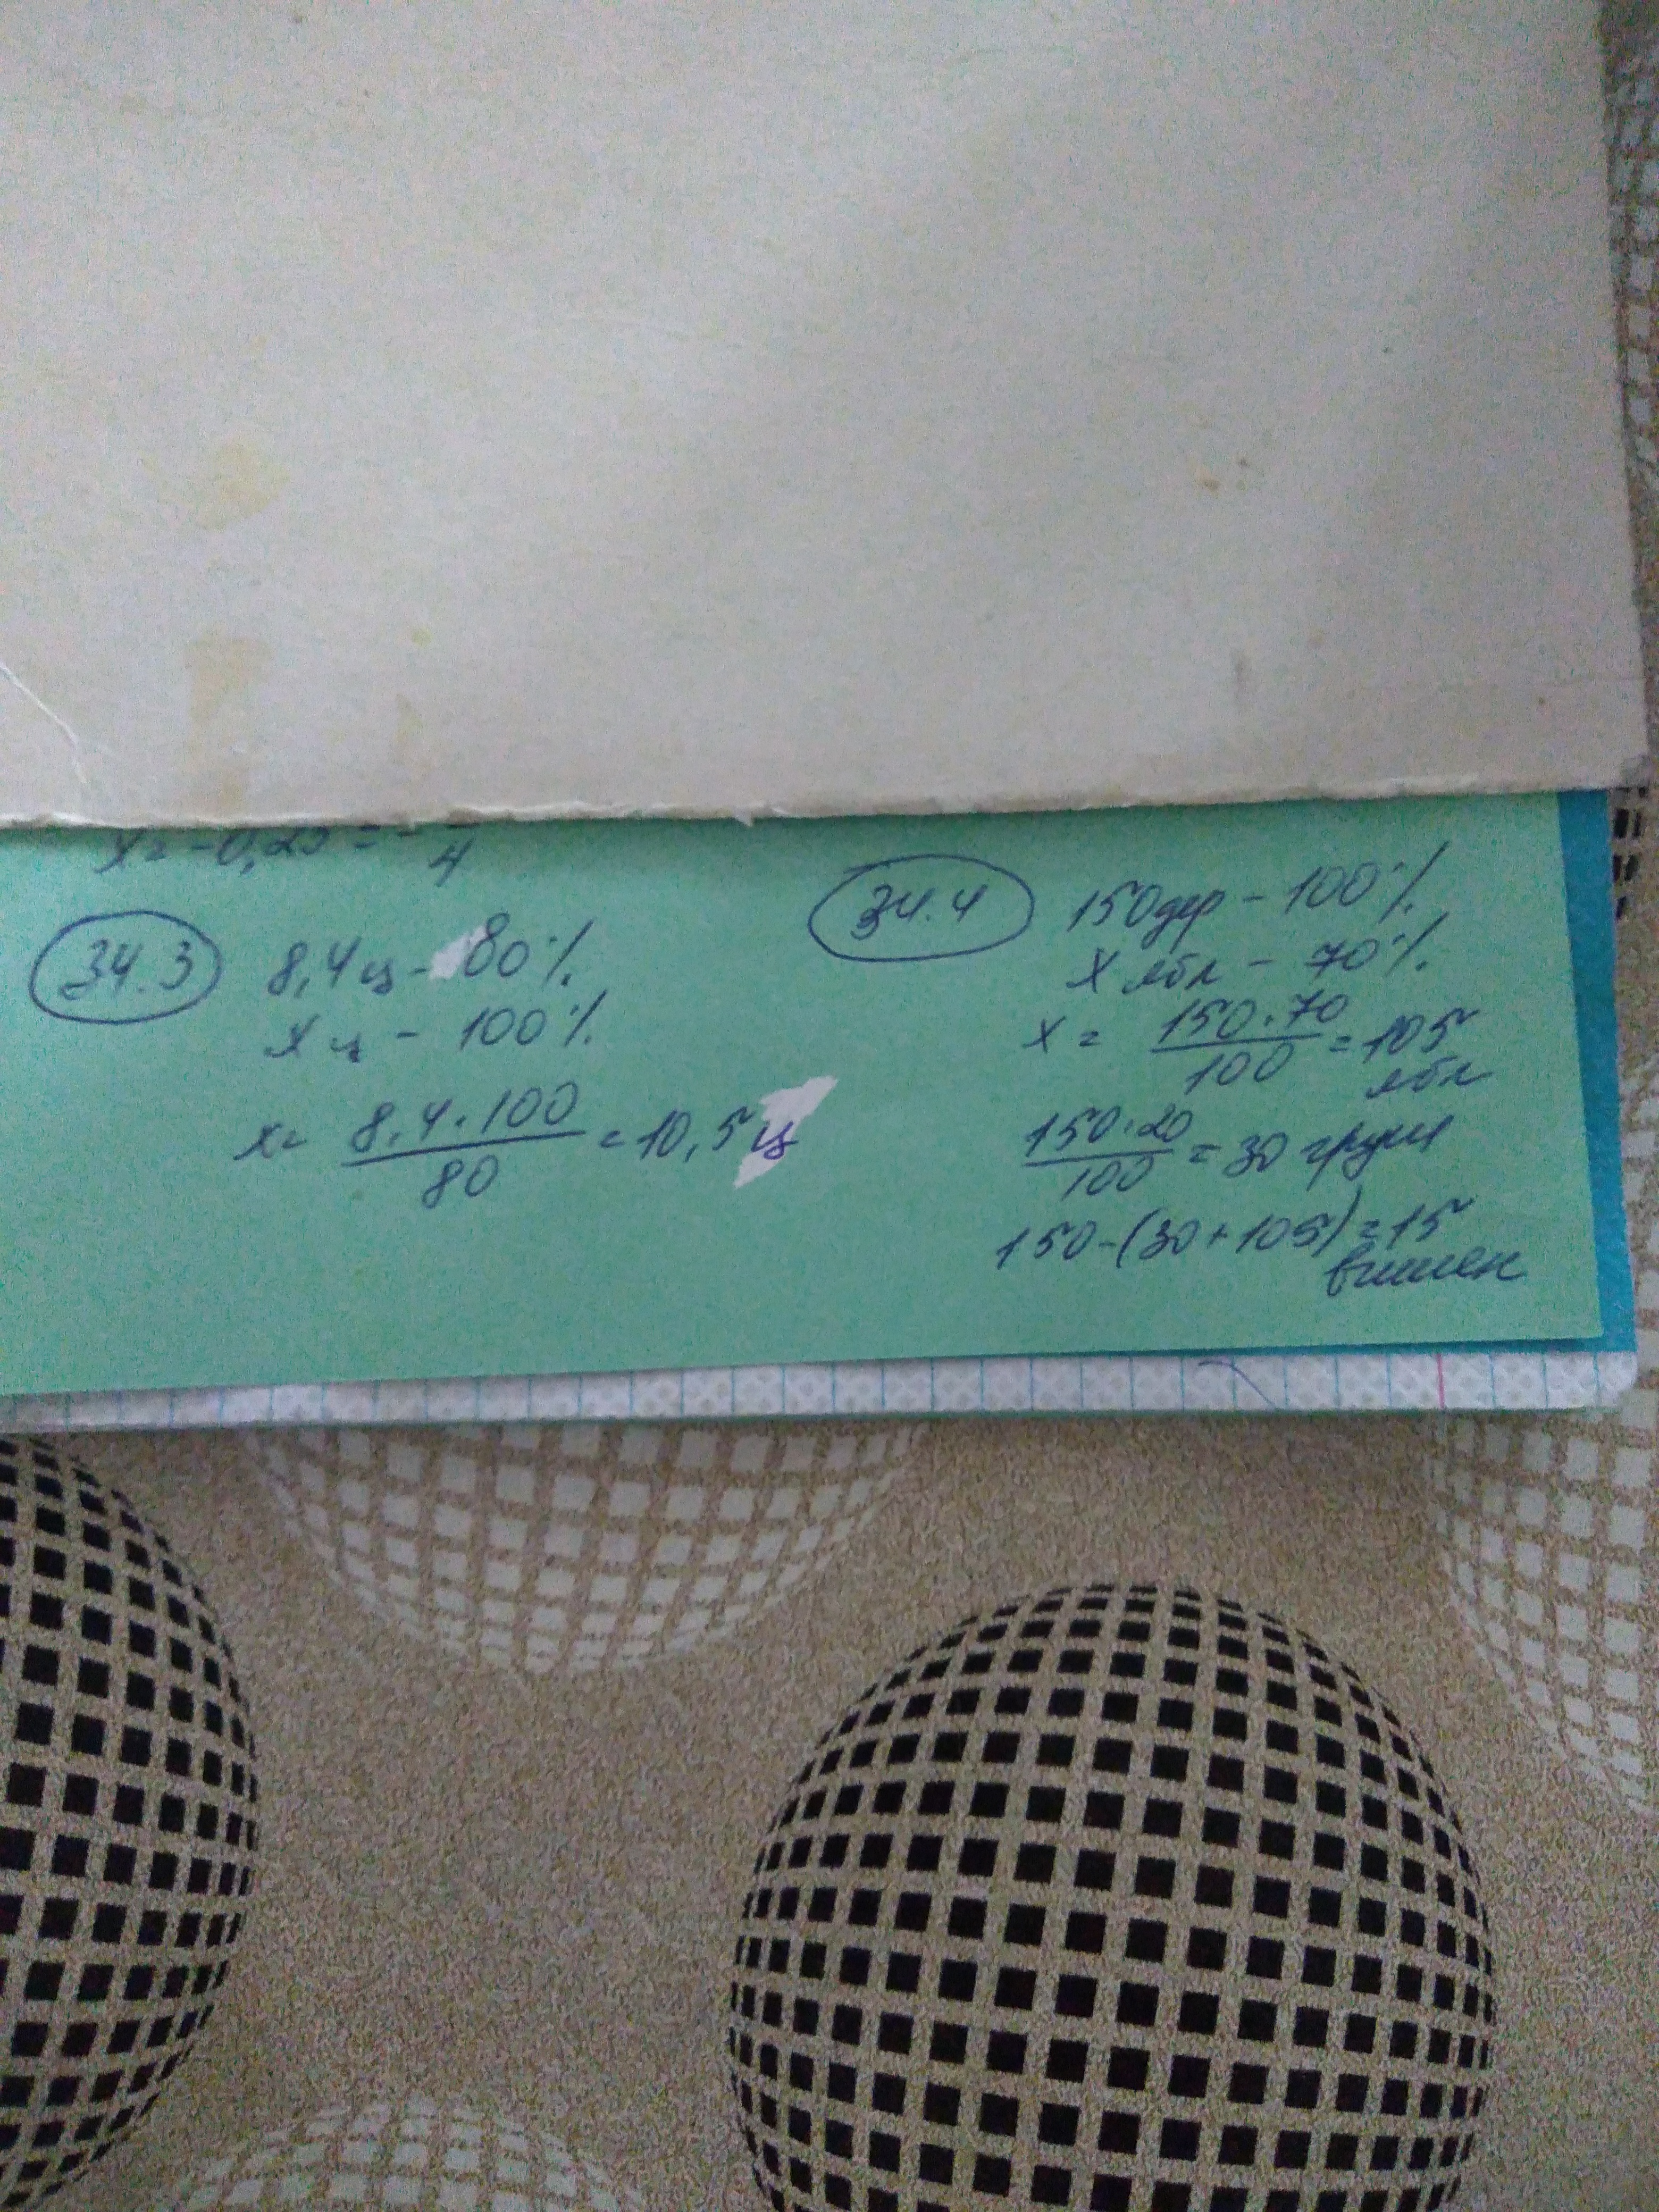 x = -0,25 = -
4
34.3
8,4 ц - 80%
x ц - 100%
x = 8,4 · 100 / 80 = 10,5 ц
34.4
150 дер - 100%
x ябл - 70%
x = 150 · 70 / 100 = 105
ябл
150 · 20 / 100 = 30 груш
150 - (30 + 105) = 15
вишен